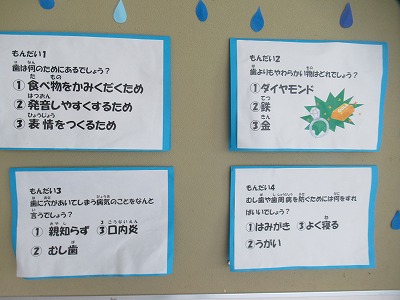 もんだい1
歯は何のためにあるでしょう？
① 食べ物をかみくだくため
② 発音しやすくするため
③ 表情をつくるため
もんだい2
歯よりもやわらかい物はどれでしょう？
① ダイヤモンド
② 鉄
③ 金
もんだい3
歯に穴があいてしまう病気のことをなんと
言うでしょう？
① 親知らず ③ 口内炎
② むし歯
もんだい4
むし歯や歯周病を防ぐためには何をすれ
ばいいでしょう？
① はみがき ③ よく寝る
② うがい